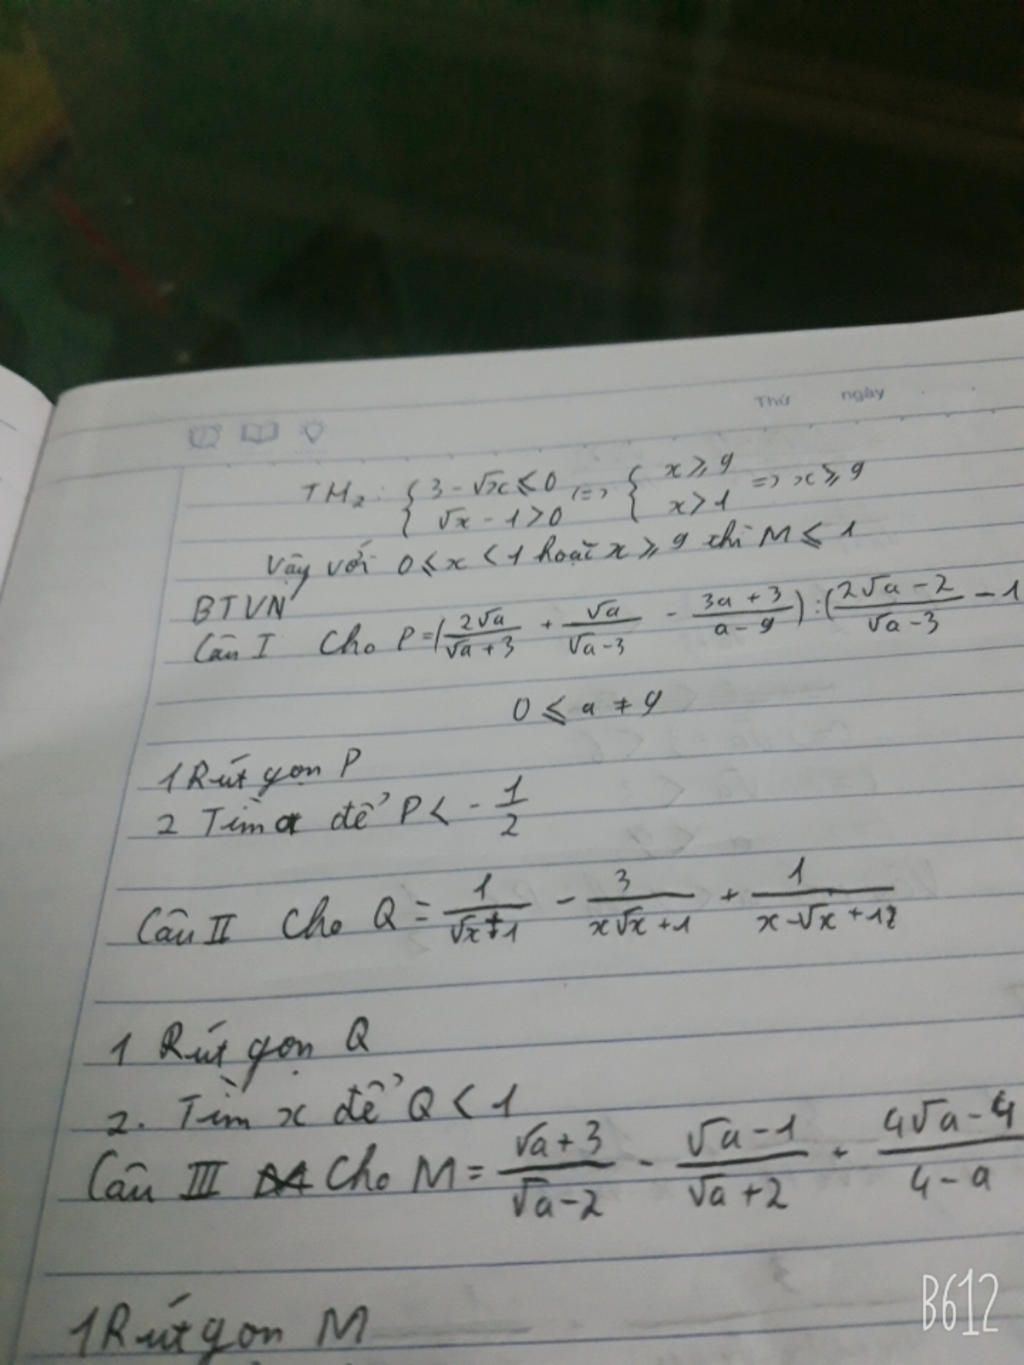 Thứ ngày
TH₂: { 3 - √x ⩽ 0 (=> { x ⩾ 9 => x ⩾ 9
√x - 1 > 0 x > 1
Vậy với 0 ⩽ x < 1 hoặc x ⩾ 9 thì M ⩽ 1
BTVN
Câu I Cho P = (2√a/(√a + 3) + √a/(√a - 3) - (3a + 3)/(a - 9)) : ((2√a - 2)/(√a - 3) - 1
0 ⩽ a ≠ 9
1 Rút gọn P
2 Tìm a để P < - 1/2
Câu II Cho Q = 1/(√x + 1) - 3/(x√x + 1) + 1/(x - √x + 1
1 Rút gọn Q
2. Tìm x để Q < 1
Câu III Cho M = (√a + 3)/(√a - 2) - (√a - 1)/(√a + 2) + (4√a - 4)/(4 - a)
1 Rút gọn M
B612